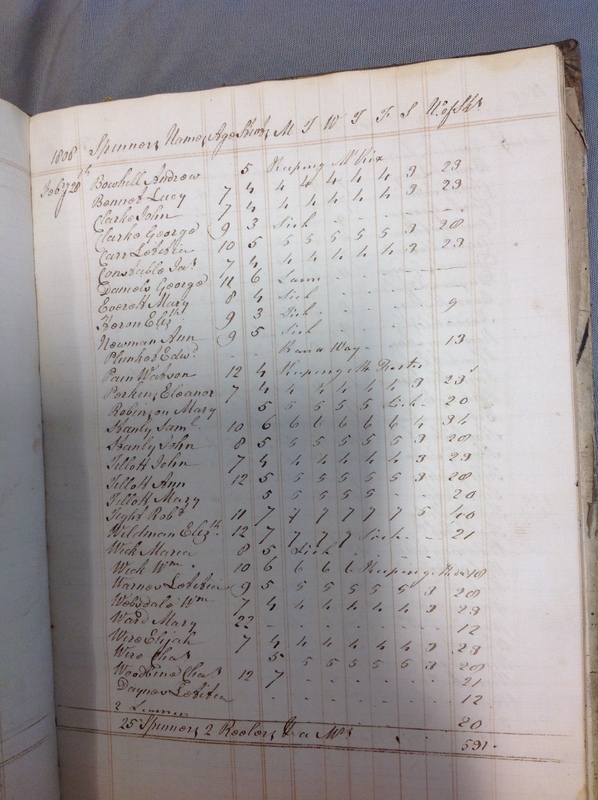 1808 Spinners Names Age Stint M T W T F S No. of Sks
Feby 20th Bowhill Andrew 5 Keeping Mr Kix
Bonner Lucy 7 4 4 4 4 4 4 3 23
Clarke John 7 4 4 4 4 4 4 3 23
Clarke George 9 3 Sick
Carr Letitia 10 5 5 5 5 5 5 3 28
Constable Jas 7 4 4 4 4 4 4 3 23
Daniels George 11 6 Lame
Everett Mary 8 4 Sick
Heron Elizth 9 3 Sick 9
Newman Ann 9 5 Sick
Plunket Edwd Ran a Way 13
Pain Watson 12 4 Keeping
Perkins Eleanor 7 4 4 4 4 4 4 3 23
Robinson Mary 5 5 5 5 5 Sick 20
Stanly Saml 10 6 6 6 6 6 6 4 34
Stanly John 8 5 5 5 5 5 5 3 28
Tillott John 7 4 4 4 4 4 4 3 23
Tillott Ann 12 5 5 5 5 5 5 3 28
Tillott Mary 5 5 5 5 5 20
Tight Robt 11 7 7 7 7 7 7 5 40
Wildman Elizth 12 7 7 7 7 Sick 21
Wick Maria 8 5 Sick
Wick Wm 10 6 6 6 6 Keeping 18
Warnes Letitia 9 5 5 5 5 5 5 3 28
Wobsdale Wm 7 4 4 4 4 4 4 3 23
Ward Mary 22 12
Wire Elijah 7 4 4 4 4 4 4 3 23
Wire Chas 5 5 5 5 5 5 3 28
Woodbine Chas 12 7 21
Daynes Letitia 12
2 20
25 Spinners 2 Reelers 591